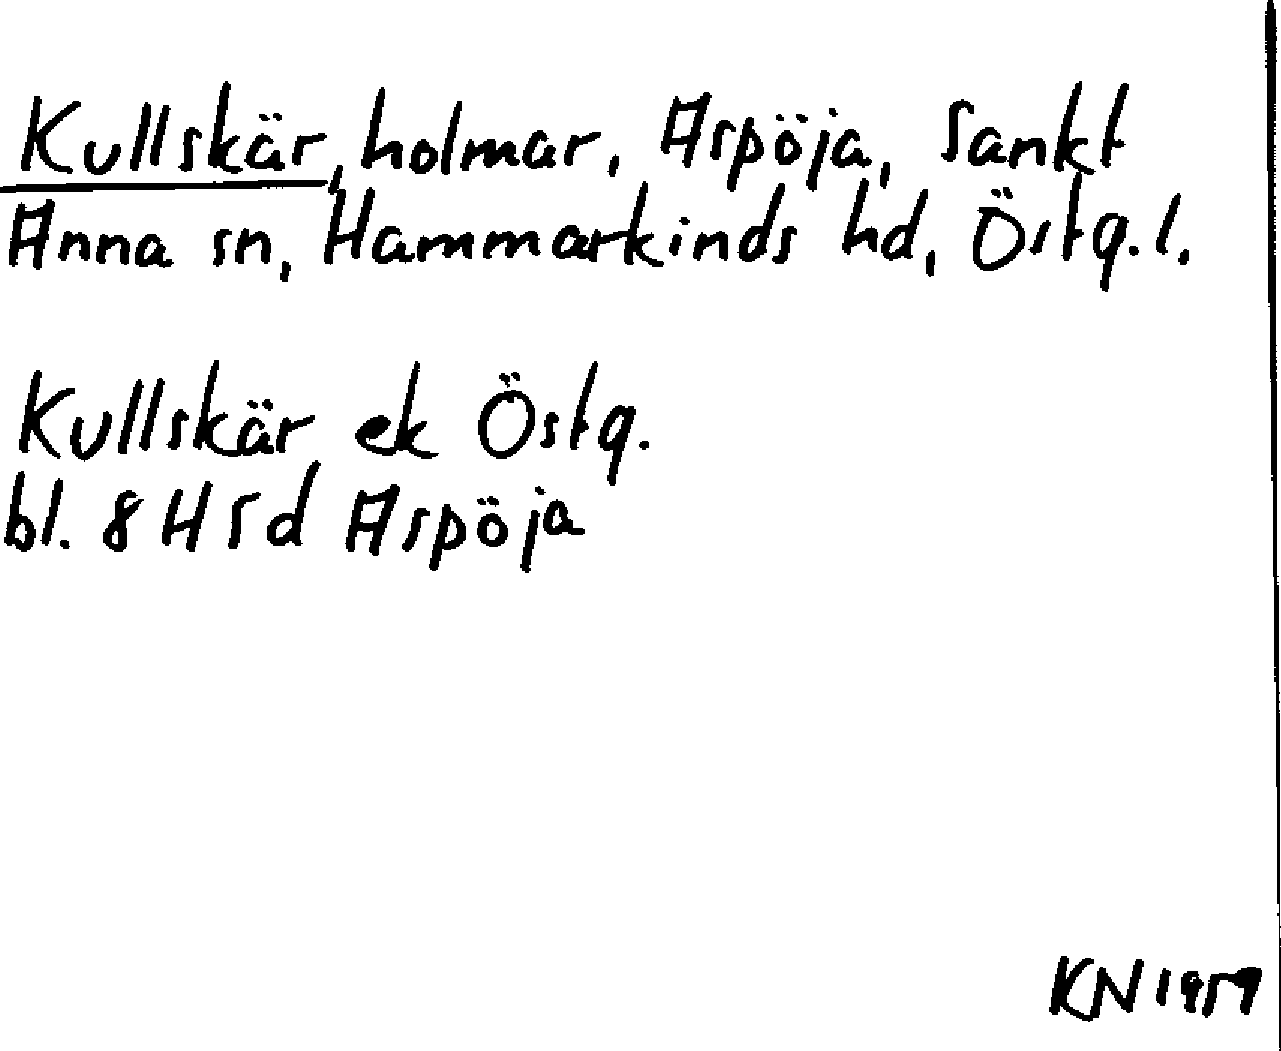 Kullskär, holmar, Aspöja, Sankt
Anna sn, Hammarkinds hd, Östg.l.
Kullskär ek Östg.
bl. 8 H 5d Aspöja
KN 1959